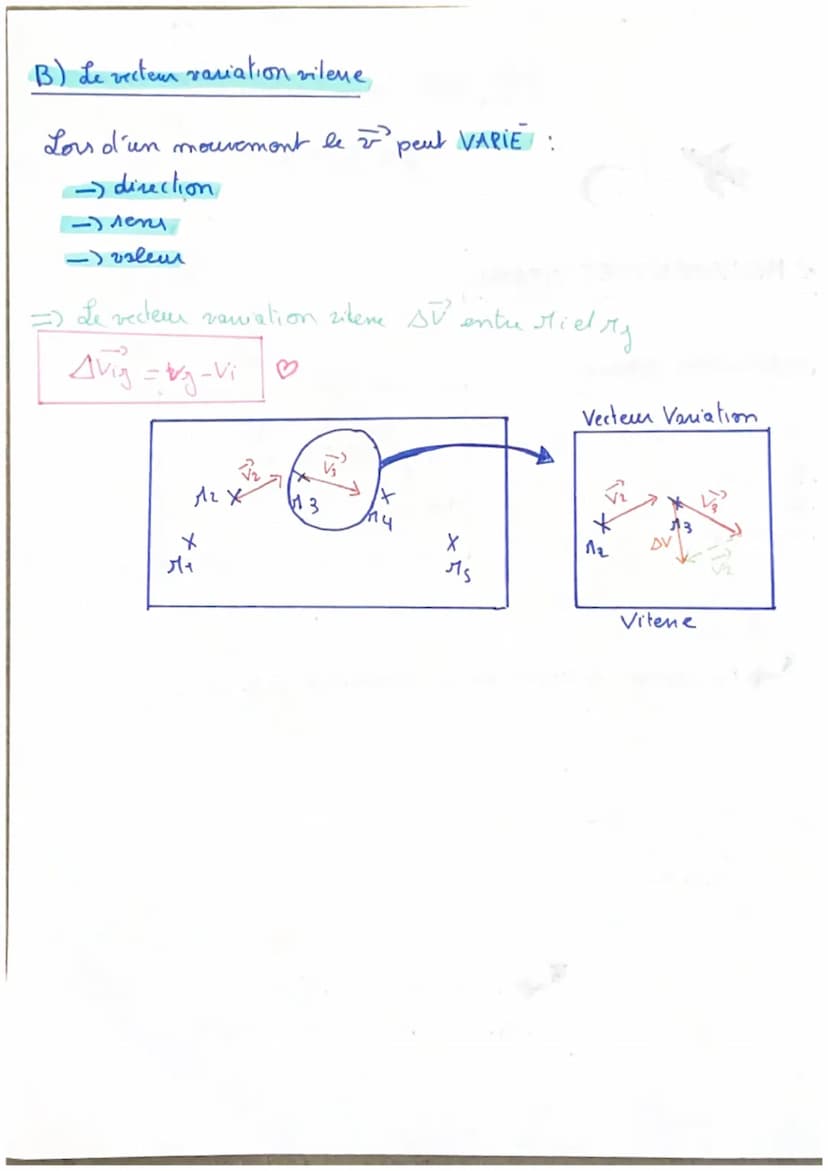 B) Le vecteur variation vitesse
Lors d'un mouvement le v⃗ peut VARIÉ :
→ direction
→ sens
→ valeur
⇒ Le vecteur variation vitesse ΔV⃗ entre Mi et Mj
ΔVij⃗ = Vj - Vi ♡
Vecteur Variation
M2 V2⃗ M3 V3⃗ M4
M1 M5
M2 V2⃗ M3 V3⃗
ΔV V2⃗
Vitesse